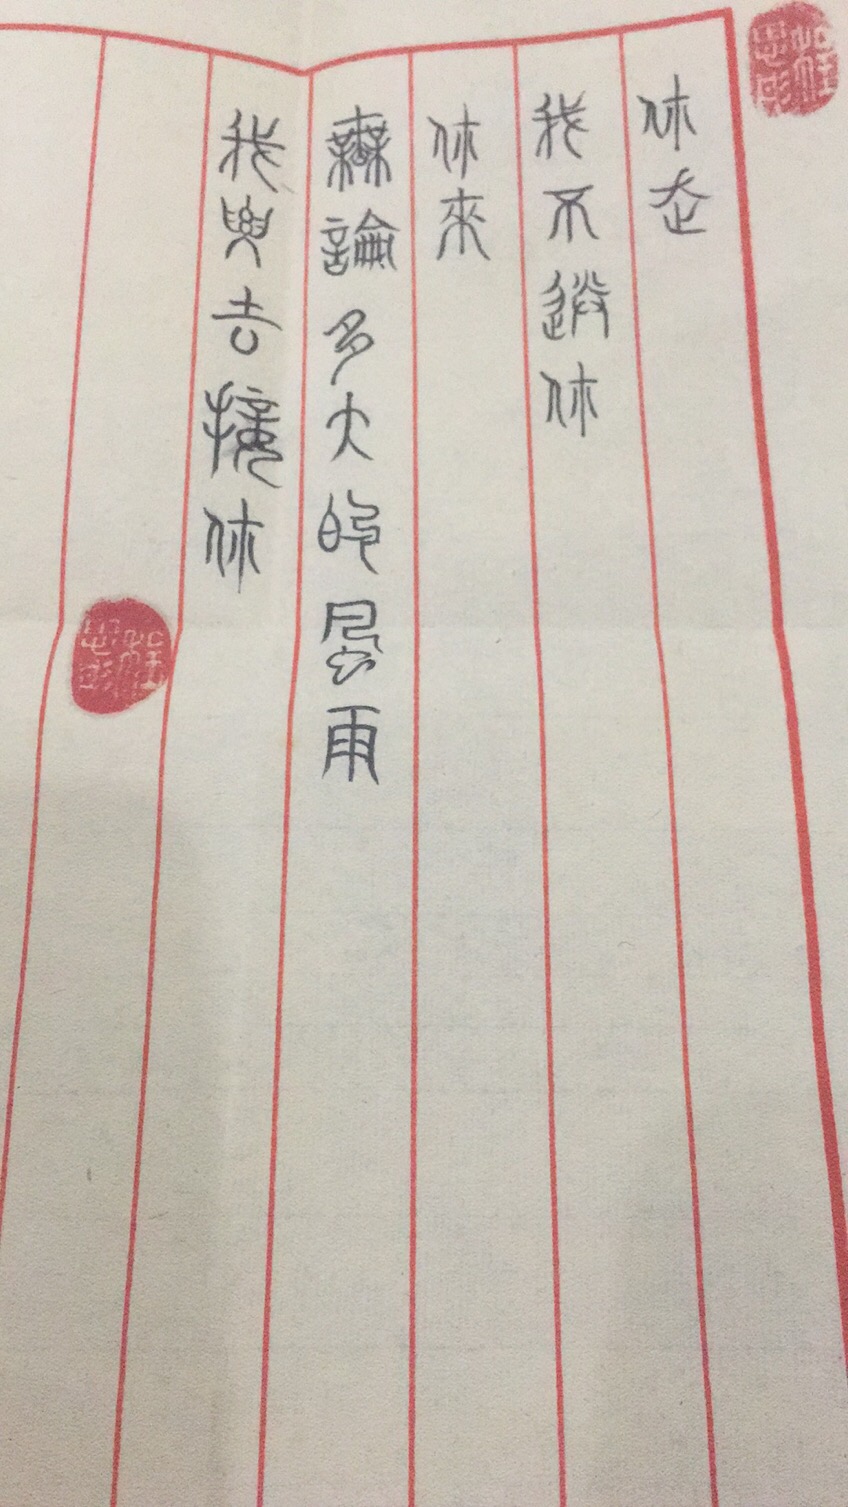 你走
我不送你
你來
無論多大的風雨
我要去接你